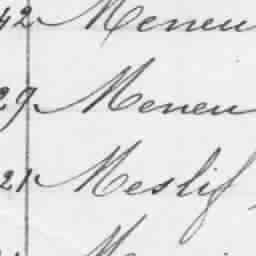 42 Meneu
29 Meneu
21 Meslif